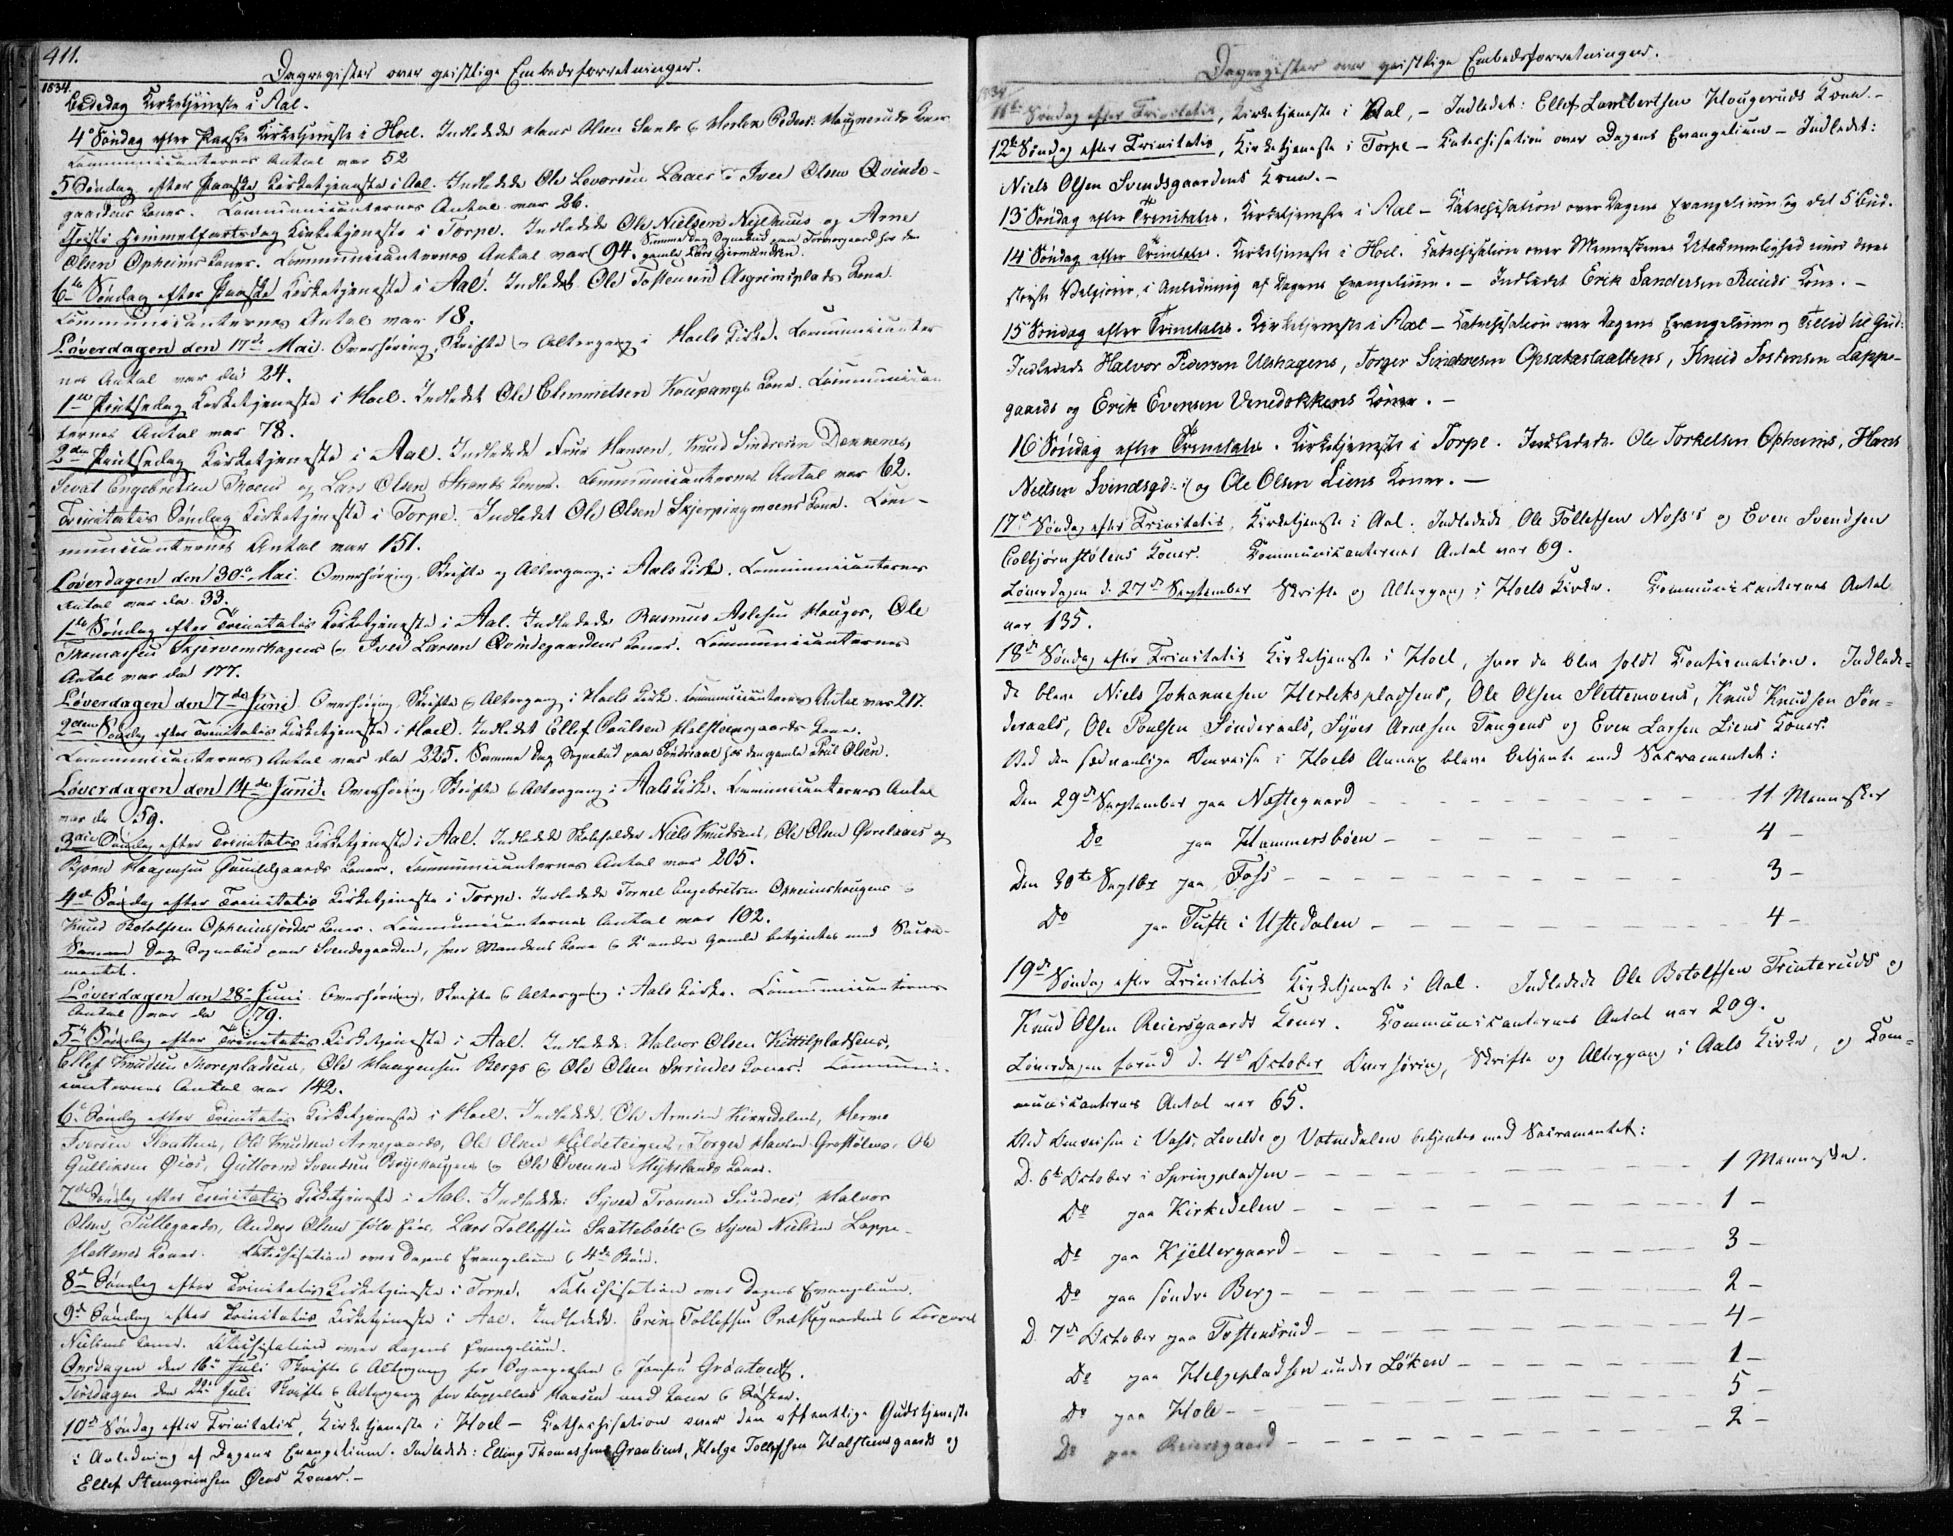 411.
Dagregister over geistlige Embedsforretninger.
1834.
Bededag Kirketjeneste i Aal.
4de Søndag efter Paaske Kirketjeneste i Hoel. Indledede Hans Olsen Sando & Herlek Peders: Haugneruds Koner
Communicanternes Antal var 52
5 Søndag efter Paaske Kirketjeneste i Aal. Indledede Ole Levorsen Laaes & Iver Olsen Qvinde-
gaardens Koner. Communicanternes Antal var 26.
Christi Himmelfartsdag Kirketjeneste i Torpe. Indledede Ole Nielsen Nyehuus og Arne
Olsen Opheims Koner. Communicanternes Antal var 94. Samme Dag Sognebud paa Torpegaard hos den gamle Lars Germundsen.
6te Søndag efter Paaske Kirketjeneste i Aal. Indledet Ole Tostensen Asgrimsplads Kone.
Communicanternes Antal var 18.
Løverdagen den 17de Mai. Overhøring, Skrifte & Altergang i Hoels Kirke. Communicanter
nes Antal var da 24.
1ste Pintsedag Kirketjeneste i Hoel. Indledet Ole Clemmetsen Kaupangs Kone. Communican
ternes Antal var 78.
2den Pintsedag Kirketjeneste i Aal. Indledede Frue Hansen, Knud Sindresen Dekkenes,
Sevat Engebretsen Thoens og Lars Olsen Strands Koner. Communicanternes Antal var 62.
Trinitatis Søndag Kirketjeneste i Torpe. Indledet Ole Olsen Skjerpingmoens Kone. Com-
municanternes Antal var 151.
Løverdagen den 30te Mai. Overhøring, Skrifte og Altergang i Aals Kirke. Communicanternes
Antal var da 33.
1ste Søndag efter Trinitatis Kirketjeneste i Aal. Indledede Rasmus Aslesen Hauges, Ole
Thomassen Skjervemshagens & Iver Larsen Qvindegaardens Koner. Communicanternes
Antal var da 177.
Løverdagen den 7de Juni Overhøring, Skrifte & Altergang i Hoels Kirke. Communicanternes Antal var 217.
2den Søndag efter Trinitatis Kirketjeneste i Hoel. Indledet Ellef Paulsen Holsteensgaards Kone.
Communicanternes Antal var da 225. Samme Dag Sognebud paa Sandraal hos den gamle Paul Olsen.
Løverdagen den 14de Juni. Overhøring, Skrifte & Altergang i Aals Kirke. Communicanternes Antal
var da 59.
3die Søndag efter Trinitatis Kirketjeneste i Aal. Indledede Skoleholder Niels Knudsens, Ole Olsen Øvrelaaes og
Bjørn Haagensen Gunildgaards Koner. Communicanternes Antal var 205.
4de Søndag efter Trinitatis Kirketjeneste i Torpe. Indledede Torkel Engebretsen Opheimshaugens &
Knud Botolfsen Opheimsjordes Koner. Communicanternes Antal var 102.
Samme Dag Sognebud paa Svendsgaarden, hvor Mandens Kone & 2 andre Gamle betjentes med Sacra-
mentet.
Løverdagen den 28de Juni Overhøring, Skrifte & Altergang i Aals Kirke. Communicanternes
Antal var da 79.
5te Søndag efter Trinitatis Kirketjeneste i Aal. Indledede: Halvor Olsen Kittilpladsens,
Ellef Knudsen Thorepladsens, Ole Haagensen Bergs & Ole Olsen Sørindes Koner. Communi-
canternes Antal var 142.
6te Søndag efter Trinitatis Kirketjeneste i Hoel. Indledede: Ole Arnesen Kirkedelens, Herme
Iversen Slaattens, Ole Knudsen Arnegaards, Ole Olsen Hjeldeteigens, Torger Harken Grøstølens, Ole
Gulliksen Øios, Guttorm Svendsen Bryehaugens & Ole Svensen Myhrlands Koner.
7de Søndag efter Trinitatis Kirketjeneste i Aal. Indledede: Syver Tronsen Sundres, Halvor
Olsen Tullegaards, Anders Olsen, Lars Tollefsen Skatteboels & Syver Nielsen Lappe-
slettens Koner. Catechisation over Dagens Evangelium & 4de Bud.
8de Søndag efter Trinitatis Kirketjeneste i Torpe. Catechisation over Dagens Evangelium.
9de Søndag efter Trinitatis Kirketjeneste i Aal. Indledede: Erik Tollefsen Præstegaardens & Corporal
Nielsens Koner. Catechisation over Dagens Evangelium.
Onsdagen den 16de Juli Skrifte & Altergang for & Jomfru Grøntvedt.
Tirsdagen den 22de Juli Skrifte & Altergang for Capellan Hansen med Kone & Søster.
10de Søndag efter Trinitatis, Kirketjeneste i Hoel - Cathechisation over den offentlige Gudstjeneste
i Anledning af Dagens Evangelium. Indledede: Elling Thomassens Grønliens, Helge Tollefsen Holsteensgaards og
Ellef Steengrimsen Øens Koner. -
Dagregister over geistlige Embedsforretninger.
1834
11te Søndag efter Trinitatis, Kirketjeneste i Aal, - Indledet: Ellef Lambertsen Hougeruds Kone. -
12te Søndag efter Trinitatis, Kirketjeneste i Torpe - Catechisation over Dagens Evangelium - Indledet:
Niels Olsen Svendsgaardens Kone. -
13 Søndag efter Trinitatis. Kirketjeneste i Aal - Catechisation over Dagens Evangelium og det 5 Bud.
14 Søndag efter Trinitatis. Kirketjeneste i Hoel. Catechisation over Menneskenes Utaknemlighed imod deres
største Velgjører, i Anledning af Dagens Evangelium. - Indledet Erik Sandersen Ruuds Kone. -
15 Søndag efter Trinitatis. Kirketjeneste i Aal - Catechisation over Dagens Evangelium og Tillid til Gud.
Indledede Halvor Pedersen Ulshagens, Torger Sindresen Opsataslaattens, Knud Tostensen Lappe-
gaards og Erik Evensen Venedokkens Koner. -
16 Søndag efter Trinitatis. Kirketjeneste i Torpe. Indledede Ole Torkelsen Opheims, Hans
Nielsen Svendsgd: og Ole Olsen Liens Koner. -
17de Søndag efter Trinitatis, Kirketjeneste i Aal. Indledede Ole Tollefsen Noss's og Even Svendsen
Colbjørnstølens Koner. Communicanternes Antal var 69.
Løverdagen d. 27de September Skrifte og Altergang i Hoels Kirke. Communicanternes Antal
var 135.
18de Søndag efter Trinitatis Kirketjeneste i Hoel, hvor da blev holdt Confirmation. Indlede-
de bleve Niels Johannesen Herleksplassens, Ole Olsen Slettemoens, Knud Knudsen Søn-
deraals, Ole Poulsen Sønderaals, Syver Arnesen Tangens og Even Larsen Liens Koner.
Ved den sædvanlige Omreise i Hoels Annex bleve betjente med Sakramentet:
Den 29de September paa Næstegaard - 11 Mennesker
Do paa Hammersbøen - 4 -
Den 30te Septbr paa Foss - 3 -
Do paa Tufte i Ustedalen - 4 -
19de Søndag efter Trinitatis Kirketjeneste i Aal. Indledede Ole Botolfsen Trinteruds og
Knud Olsen Reiersgaards Koner. Communicanternes Antal var 209.
Løverdagen forud d. 4de October Overhøring, Skrifte og Altergang i Aals Kirke, og Com-
municanternes Antal var 65.
Ved Omreisen i Vass, Levelde og Vatnedalen betjentes med Sakramentet:
D. 6te October i Springpladsen - 1 Menneske.
Do paa Kirkedelen - 1 -
Do paa Kjellergaard - 3 -
Do paa søndre Berg - 2 -
D. 7de October paa Tostensrud - 4 -
Do paa Helgepladsen under Løken - 1 -
Do paa Hole - 5 -
Do paa Reiersgaard - 2 -